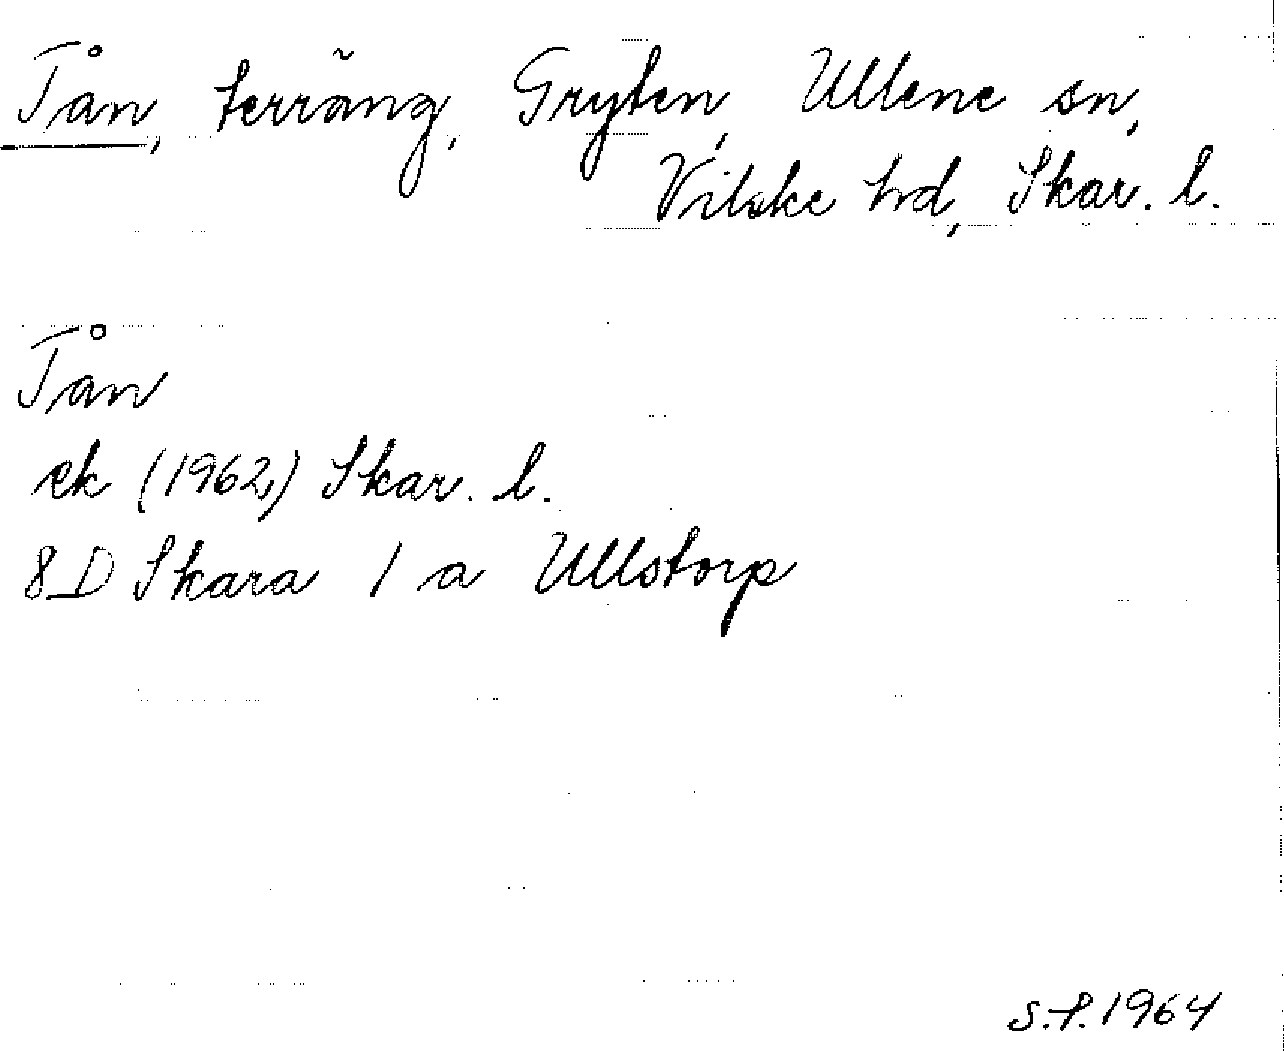 Tån, terräng, Gryten, Ullene sn,
Vilske hd, Skar. l.
Tån
ek (1962) Skar. l.
8D Skara 1 a Ullstorp
S.F. 1964